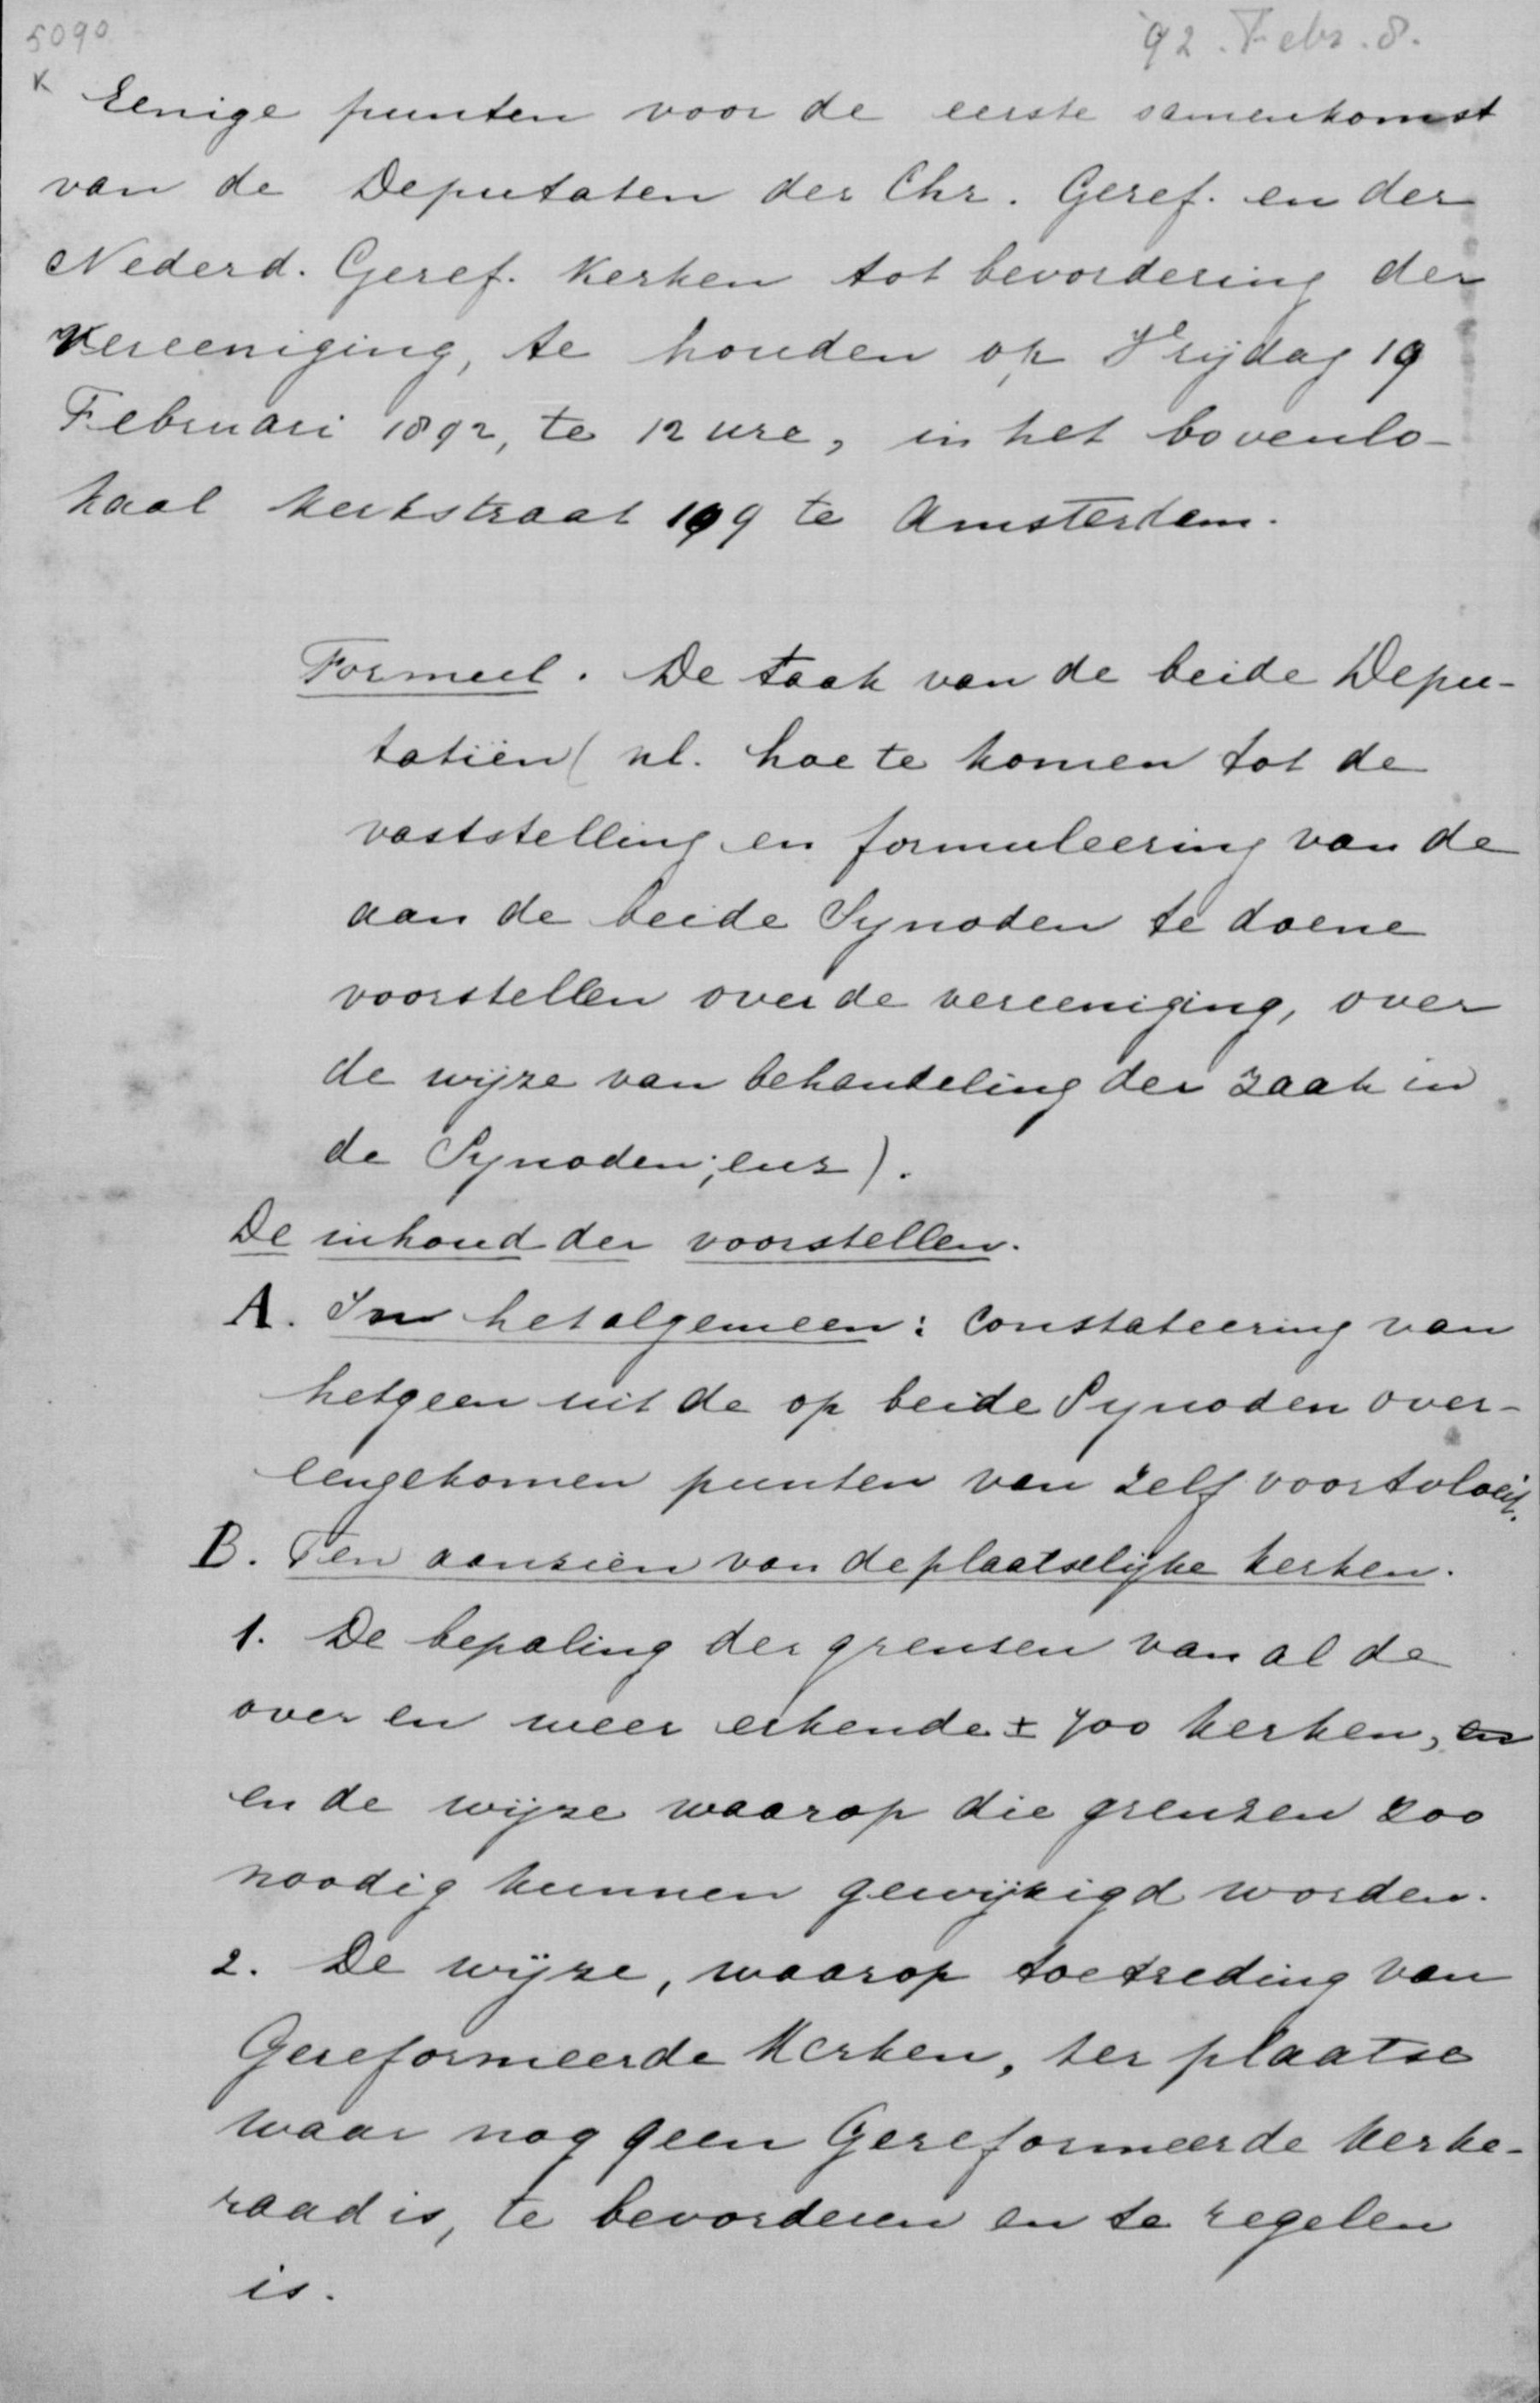 5090
'92. Febr. 8.
Eenige punten voor de eerste samenkomst
van de Deputaten der Chr. Geref. en der
Nederd. Geref. Kerken tot bevordering der
Vereeniging, te houden op Vrijdag 19
Februari 1892, te 12 ure, in het bovenlo-
kaal Kerkstraat 199 te Amsterdam.
Formeel. De taak van de beide Depu-
tatiën (nl. hoe te komen tot de
vaststelling en formuleering van de
aan de beide Synoden te doene
voorstellen over de vereeniging, over
de wijze van behandeling der zaak in
de Synoden; enz).
De inhoud der voorstellen.
A. In het algemeen: Constateering van
hetgeen uit de op beide Synoden over-
eengekomen punten van zelf voortvloeit.
B. Ten aanzien van de plaatselijke kerken.
1. De bepaling der grenzen van al de
over en weer erkende ± 700 kerken, en
en de wijze waarop die grenzen zoo
noodig kunnen gewijzigd worden.
2. De wijze, waarop toetreding van
Gereformeerde Kerken, ter plaatse
waar nog geen Gereformeerde kerke-
raad is, te bevorderen en te regelen
is.